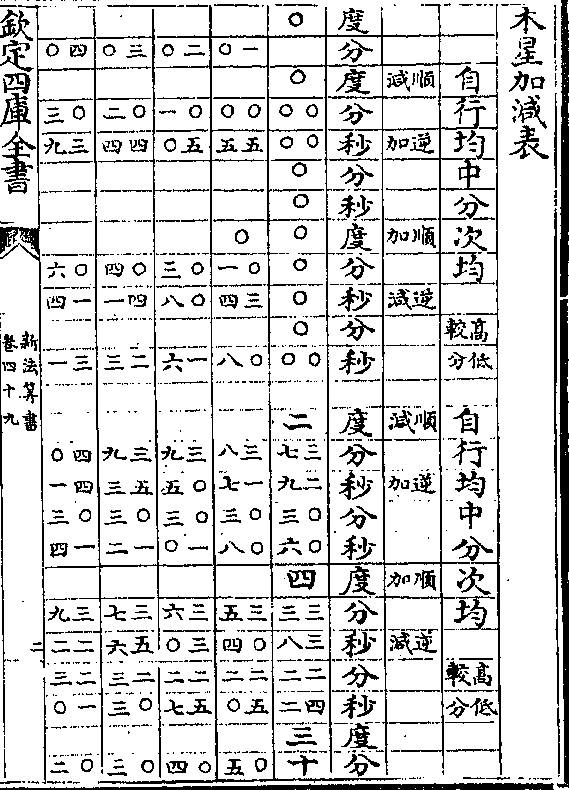 木星加減表
自行均 中分 次均 高低較分 自行均 中分 次均 高低較分
順減 逆加 順加 逆減 順減 逆加 順加 逆減
度 分 度 分 秒 分 秒 度 分 秒 分 秒 度 分 秒 分 秒 度 分 秒 分 秒 度 分
○ ○ ○○ ○○ ○ ○ ○ ○ ○ ○ ○○ 二 三七 二九 ○三 ○六 四 三三 三八 二二 四二 三 十
一○ ○○ 五五 ○ ○一 三四 ○八 三八 一七 ○三 ○八 三五 ○四 二二 五○ ○五
二○ ○一 五○ ○三 ○八 一六 三九 ○五 ○三 一○ 三六 三○ 二二 五七 ○四
三○ ○二 四四 ○四 四一 二三 三九 五三 ○三 一二 三七 五六 二三 ○三 ○三
四○ ○三 三九 ○六 一四 三一 四○ 四一 ○三 一四 三九 二二 二三 一○ ○二
欽定四庫全書
新法算書
卷四十九
二